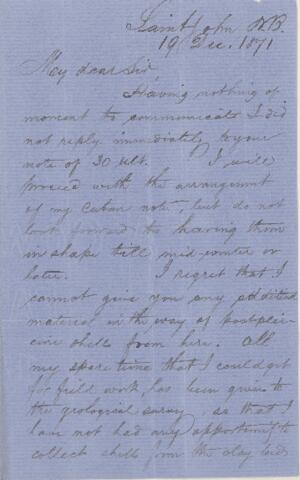 Saint John N.B.
19 Dec. 1871
My dear Sir,
Having nothing of
moment to communicate I did
not reply immediately to your
note of 30 ult. I will
proceed with the arrangement
of my Cuban notes, but do not
look forward to having them
in shape till mid-winter or
later. I regret that I
cannot give you any additional
material in the way of postplio-
cene shells from here. All
my spare time that I could get
for field work, has been given to
the geological survey, so that I
have not had any opportunity to
collect shells from the clay beds